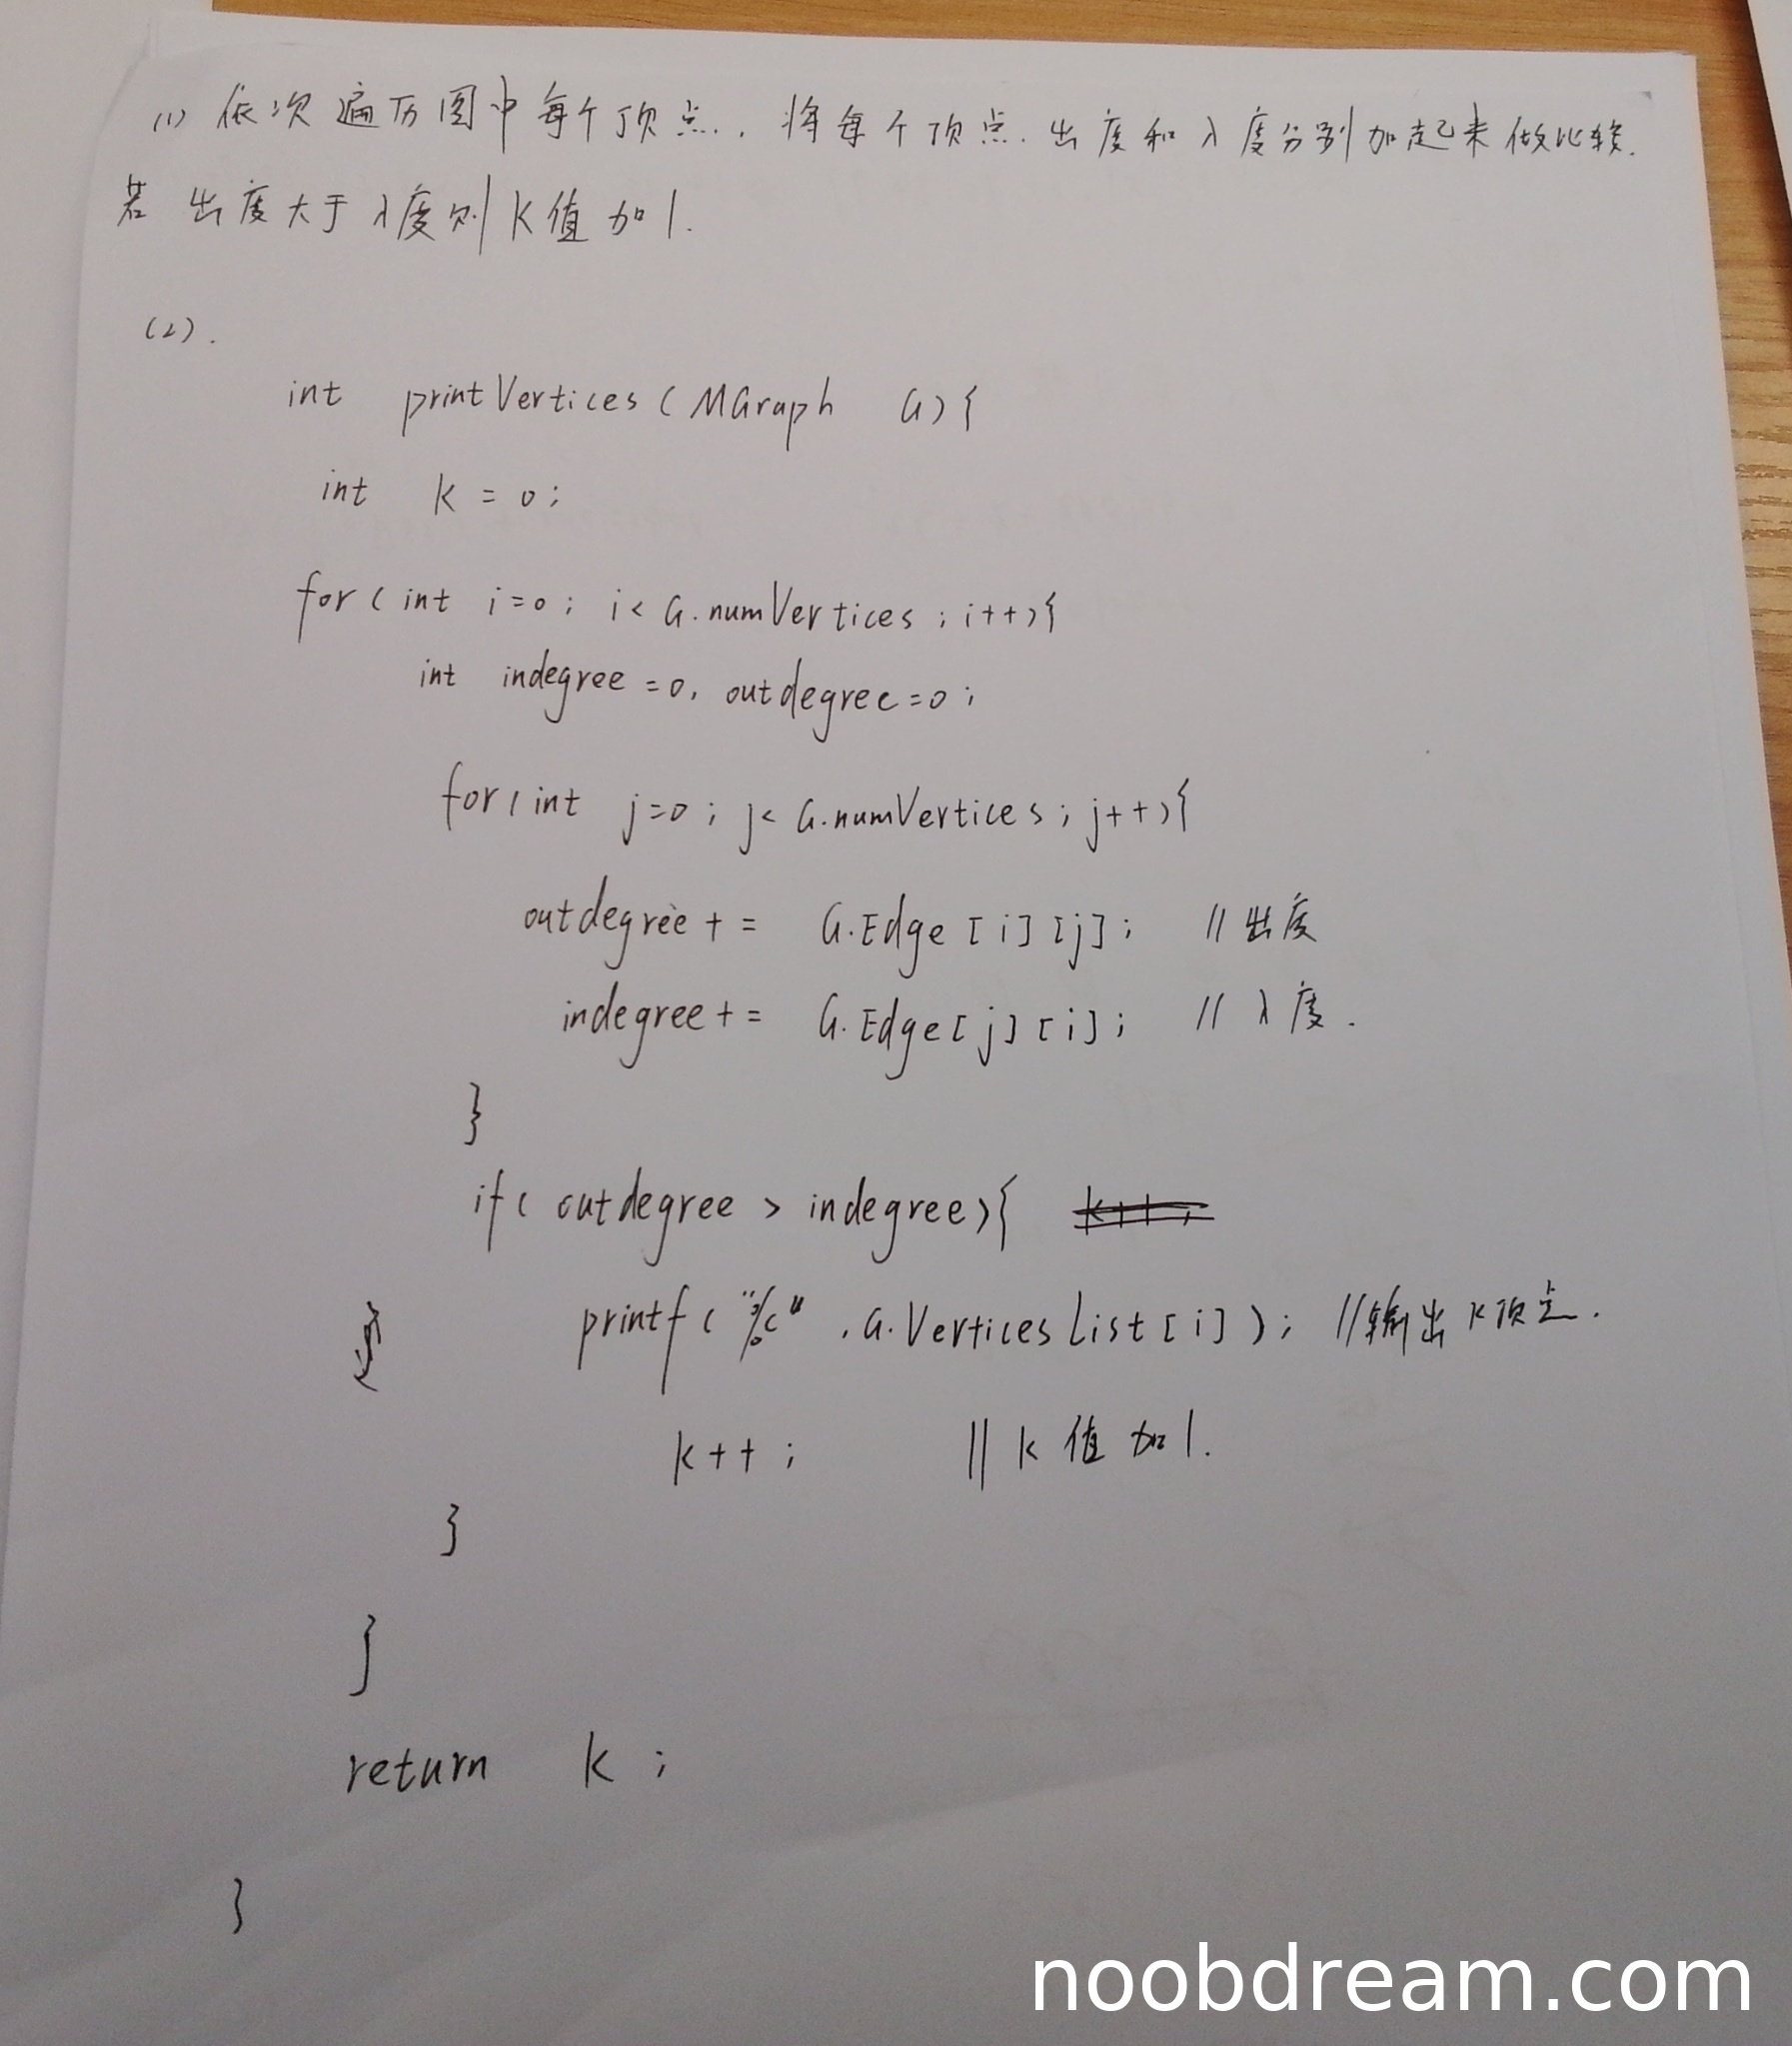 (1) 依次遍历图中每个顶点, 将每个顶点.出度和入度分别加起来做比较.
若 出度大于入度则K值加1.
(2).
int printVertices(MGraph G){
int k = 0;
for(int i=0; i< G.numVertices; i++){
int indegree=0, outdegree=0;
for(int j=0; j< G.numVertices; j++){
outdegree += G.Edge[i][j]; //出度
indegree += G.Edge[j][i]; //入度.
}
if(outdegree > indegree){
printf("%c",G.VerticesList[i]); //输出K顶点.
k++; //k值加1.
}
}
return k;
}
noobdream.com